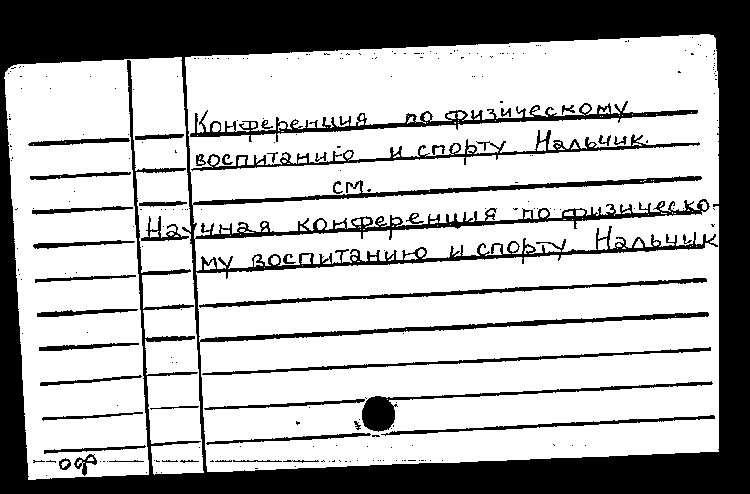 Конференция по физическому
воспитанию и спорту Нальчик.
см.
Научная конференция по физическо-
му воспитанию и спорту Нальчик